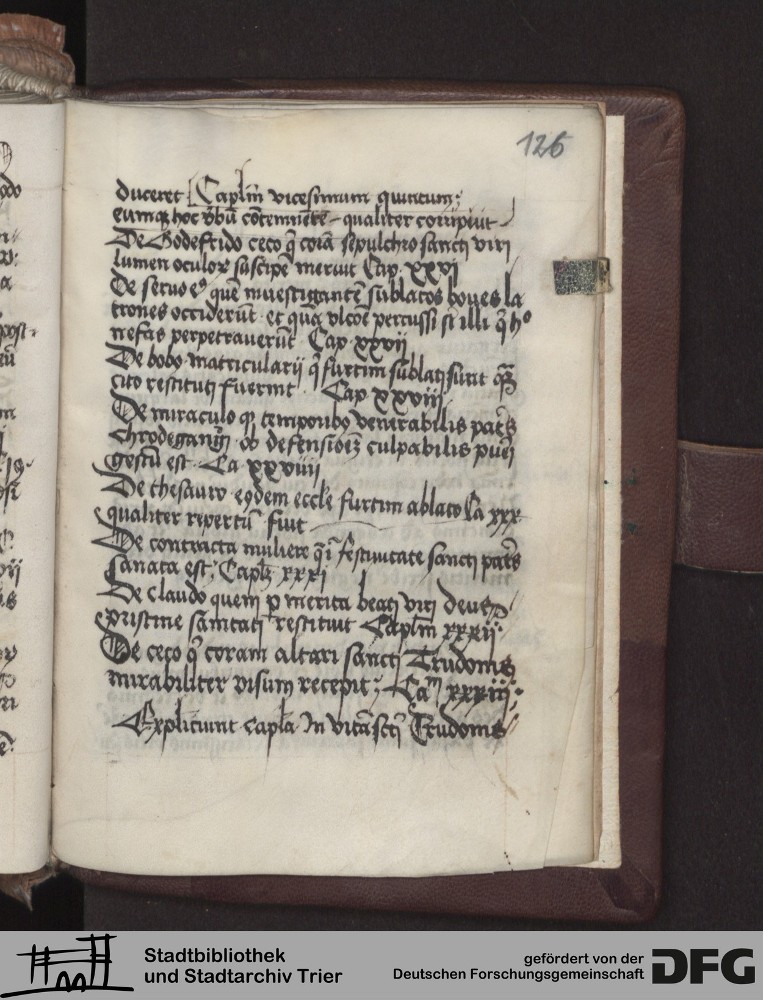 126
duceret Caplm̄ vicesimum quintum;
eumq hoc v̄bū cōtemnētē qualiter corripiut
De Godefrido ceco q̄ corā sepulchro sancti viri
lumen oculoꝝ suscipe meruit Cap. XXVI
De seruo eꝰ quē inuestigantē sublatos boues la
trones occiderūt et qua vlcōe percussi sī illi q̄ hº
nefas perpetrauerūt Cap xxvii
De bobꝰ matricularii q̄ furtim sublati sunt
cito restituti fuerint Cap XXVIII
De miraculo qꝫ temporibꝰ venerabilis patͥs
Chrodegangi ob defensiōeꝫ culpabilis pueri
gestū est Ca XXVIIII
De thesauro eꝯdem eccle furtim ablato Ca XXX
qualiter repertū fuit
De contracta muliere q̄ ī festiuitate sancti patͥs
sanata est; Caplꝫ xxxi
De Claudo quem p merita beati viri deus
pristine sanitati restituit Caplm̄ xxxii
De ceco q̄ coram altari sancti Trudonis
mirabiliter visum recepit; Caᵐ xxxiii;
Expliciunt capla In vitā sc̄ti Trudonis
Stadtbibliothek
und Stadtarchiv Trier
gefördert von der
Deutschen Forschungsgemeinschaft
DFG